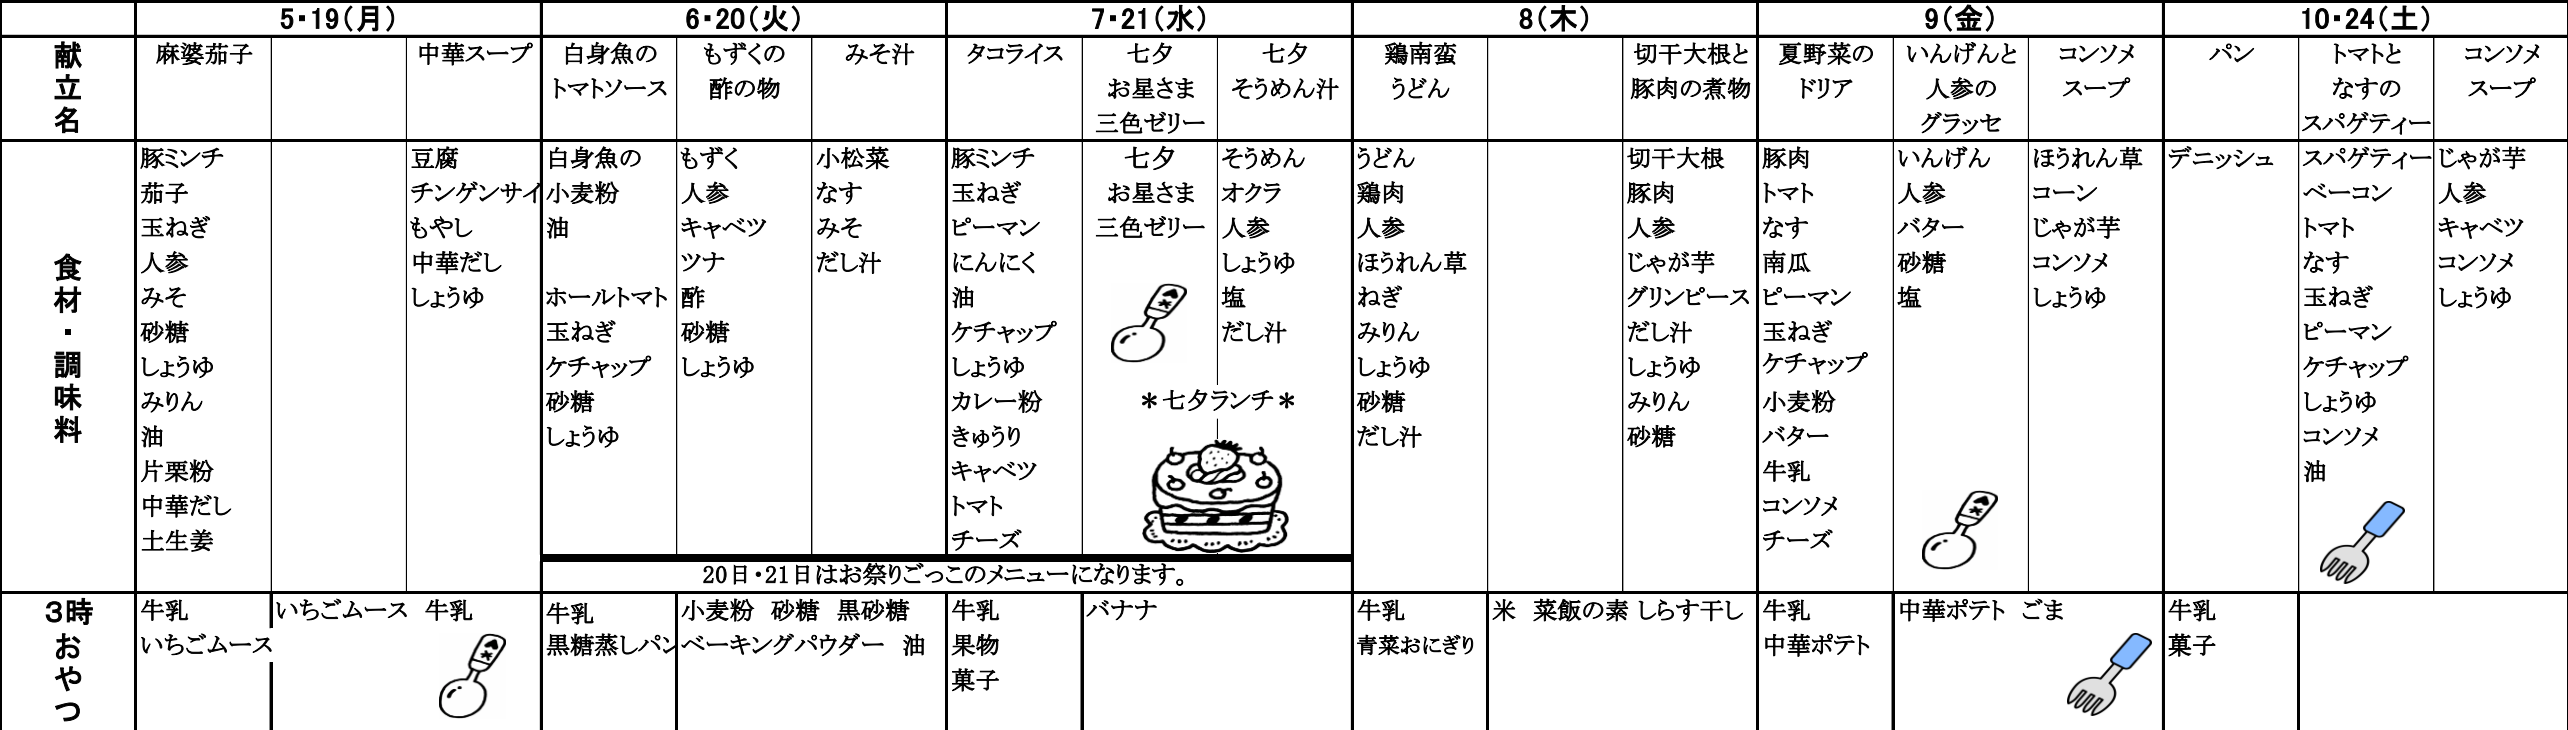 5・19（月）
6・20（火）
7・21（水）
8（木）
9（金）
10・24（土）
献立名
麻婆茄子
中華スープ
白身魚の
トマトソース
もずくの
酢の物
みそ汁
タコライス
七夕
お星さま
三色ゼリー
七夕
そうめん汁
鶏南蛮
うどん
切干大根と
豚肉の煮物
夏野菜の
ドリア
いんげんと
人参の
グラッセ
コンソメ
スープ
パン
トマトと
なすの
スパゲティー
コンソメ
スープ
食材・調味料
豚ミンチ
茄子
玉ねぎ
人参
みそ
砂糖
しょうゆ
みりん
油
片栗粉
中華だし
土生姜
豆腐
チンゲンサイ
もやし
中華だし
しょうゆ
白身魚の
小麦粉
油
ホールトマト
玉ねぎ
ケチャップ
砂糖
しょうゆ
もずく
人参
キャベツ
ツナ
酢
砂糖
しょうゆ
小松菜
なす
みそ
だし汁
豚ミンチ
玉ねぎ
ピーマン
にんにく
油
ケチャップ
しょうゆ
カレー粉
きゅうり
キャベツ
トマト
チーズ
七夕
お星さま
三色ゼリー
そうめん
オクラ
人参
しょうゆ
塩
だし汁
＊七夕ランチ＊
20日・21日はお祭りごっこのメニューになります。
うどん
鶏肉
人参
ほうれん草
ねぎ
みりん
しょうゆ
砂糖
だし汁
切干大根
豚肉
人参
じゃが芋
グリンピース
だし汁
しょうゆ
みりん
砂糖
豚肉
トマト
なす
南瓜
ピーマン
玉ねぎ
ケチャップ
小麦粉
バター
牛乳
コンソメ
チーズ
いんげん
人参
バター
砂糖
塩
ほうれん草
コーン
じゃが芋
コンソメ
しょうゆ
デニッシュ
スパゲティー
ベーコン
トマト
なす
玉ねぎ
ピーマン
ケチャップ
しょうゆ
コンソメ
油
じゃが芋
人参
キャベツ
コンソメ
しょうゆ
3時おやつ
牛乳
いちごムース
いちごムース　牛乳
牛乳
黒糖蒸しパン
小麦粉　砂糖　黒砂糖
ベーキングパウダー　油
牛乳
果物
菓子
バナナ
牛乳
青菜おにぎり
米　菜飯の素 しらす干し
牛乳
中華ポテト
中華ポテト　ごま
牛乳
菓子